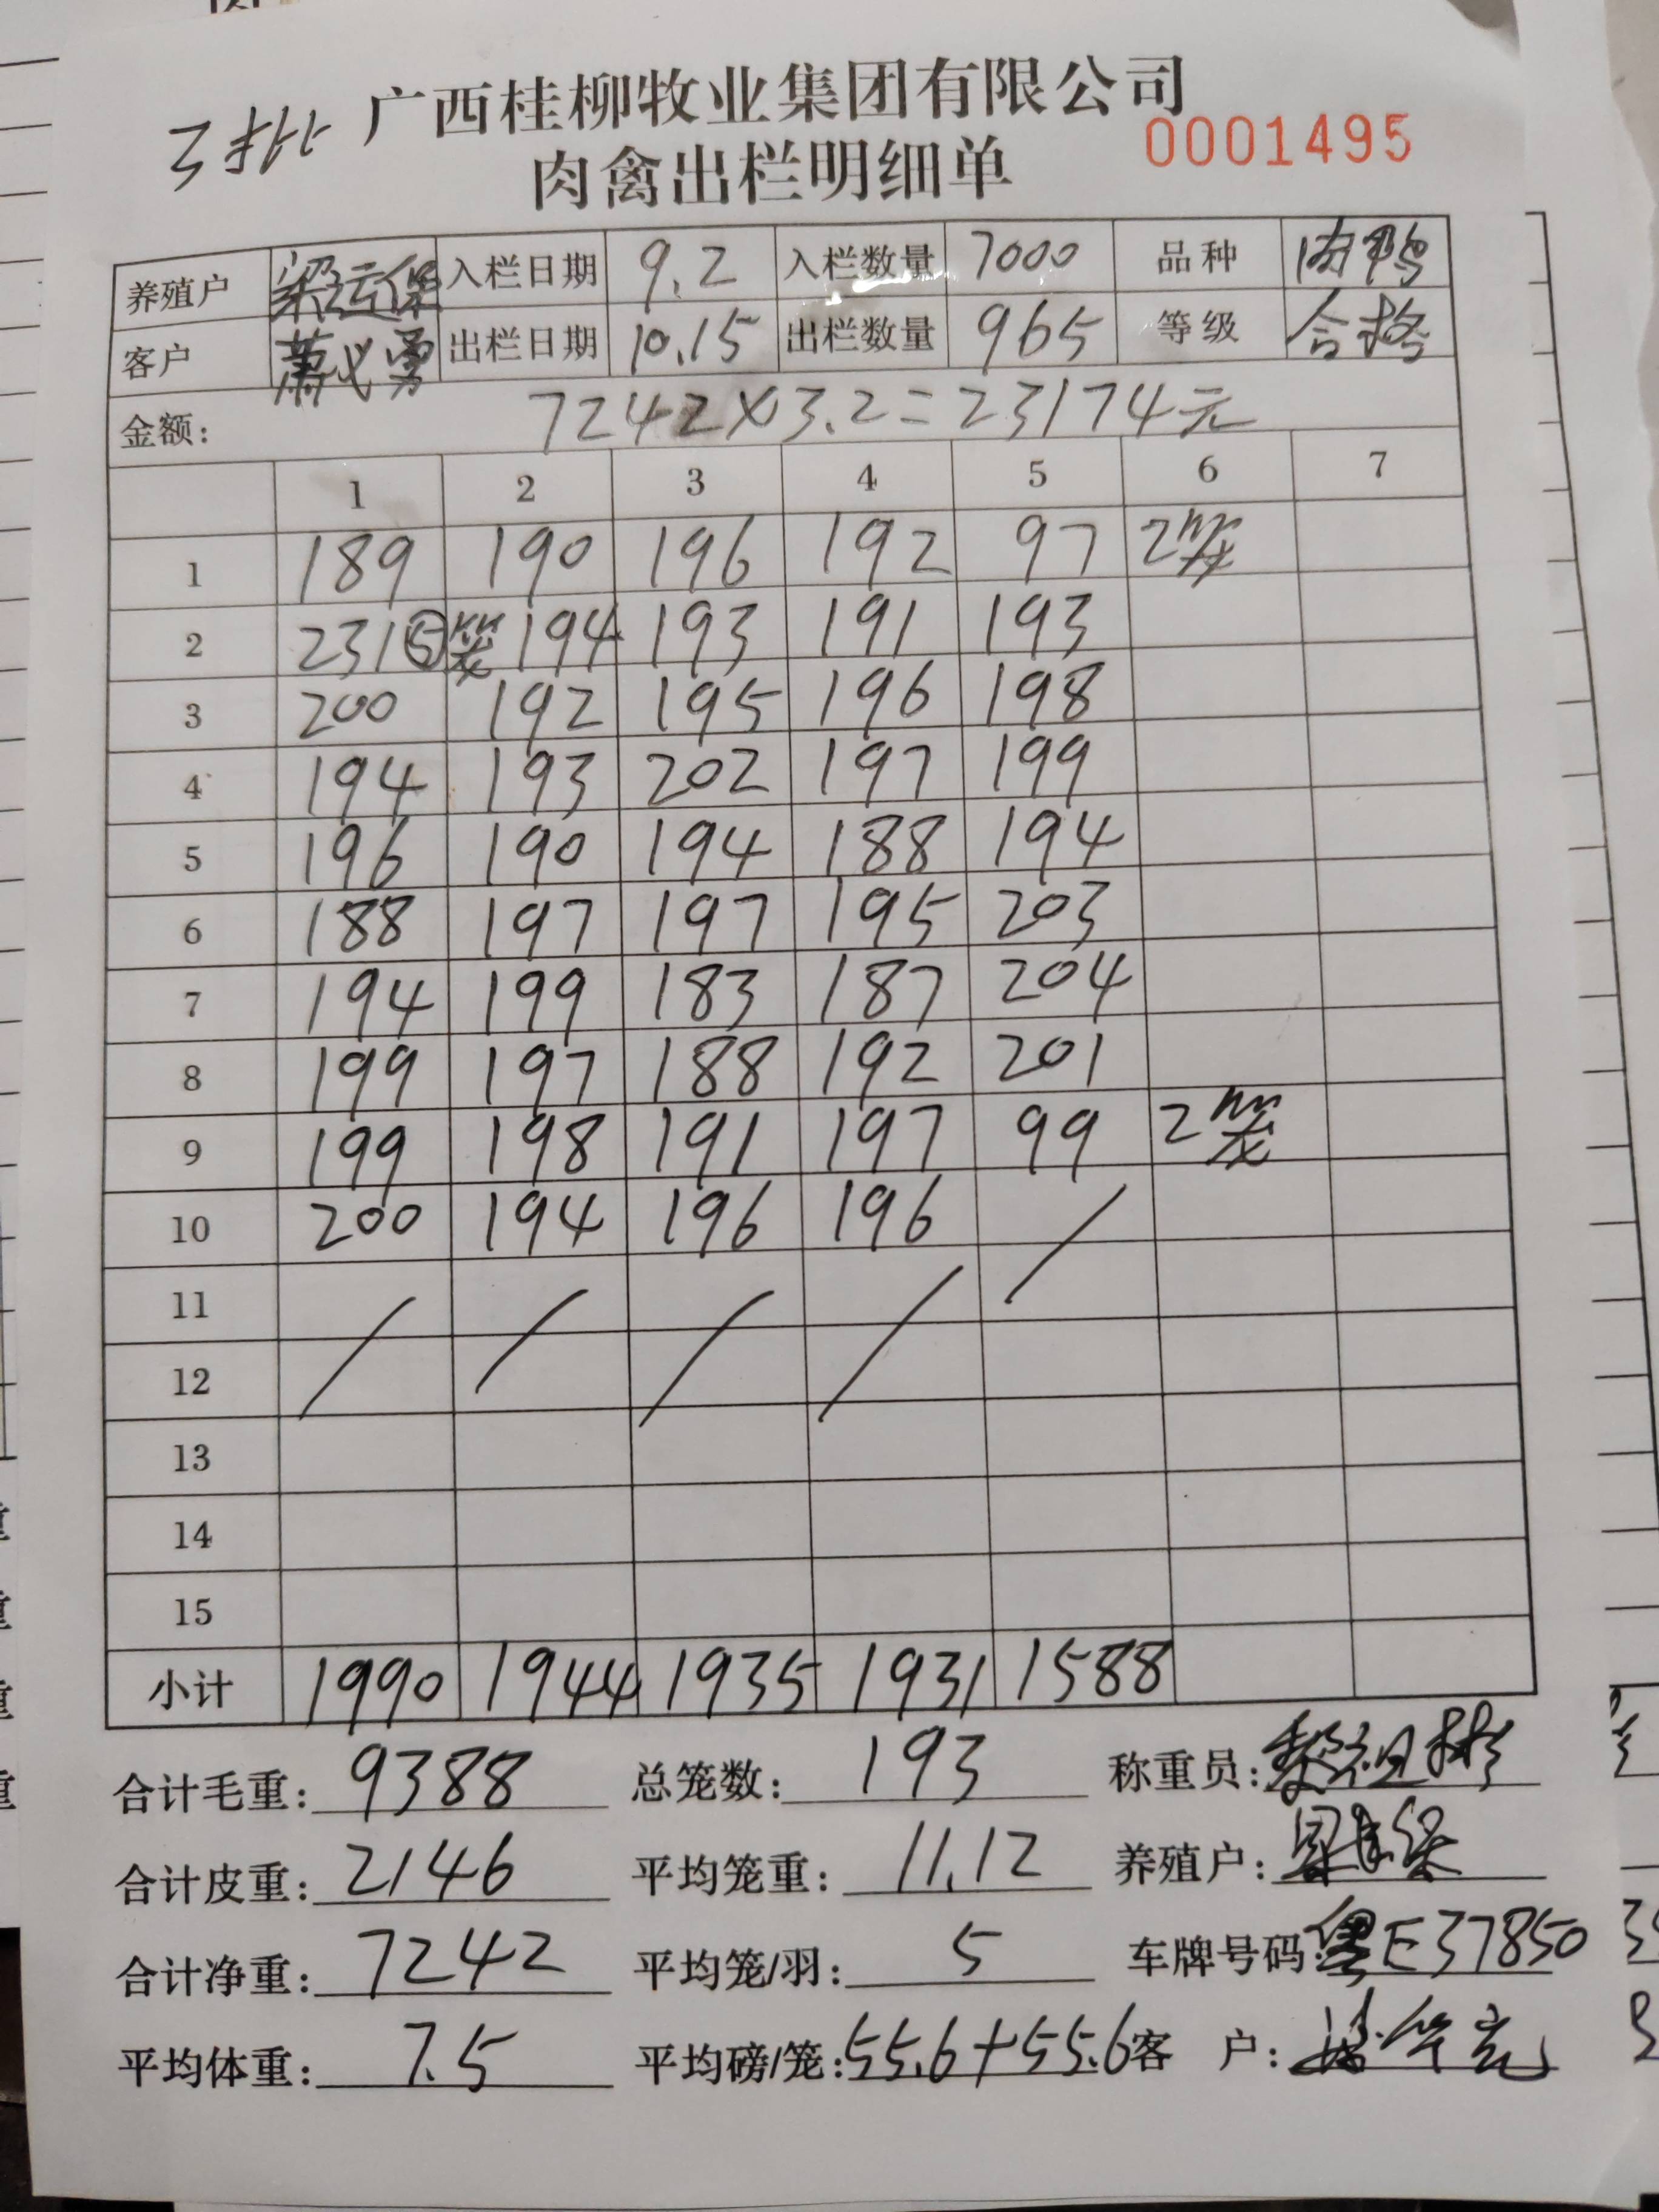 3批 广西桂柳牧业集团有限公司
肉禽出栏明细单 0001495
养殖户 梁运保 入栏日期 9.2 入栏数量 7000 品种 肉鸭
客户 萧义勇 出栏日期 10.15 出栏数量 965 等级 合格
金额: 7242×3.2=23174元
1 2 3 4 5 6 7
1 189 190 196 192 97 2笼
2 231⑤笼 194 193 191 193
3 200 192 195 196 198
4 194 193 202 197 199
5 196 190 194 188 194
6 188 197 197 195 203
7 194 199 183 187 204
8 199 197 188 192 201
9 199 198 191 197 99 2笼
10 200 194 196 196 /
11
12 / / / /
13
14
15
小计 1990 1944 1935 1931 1588
合计毛重: 9388 总笼数: 193 称重员:
合计皮重: 2146 平均笼重: 11.12 养殖户:
合计净重: 7242 平均笼/羽: 5 车牌号码: 粤E37850
平均体重: 7.5 平均磅/笼: 55.6+55.6 客户: